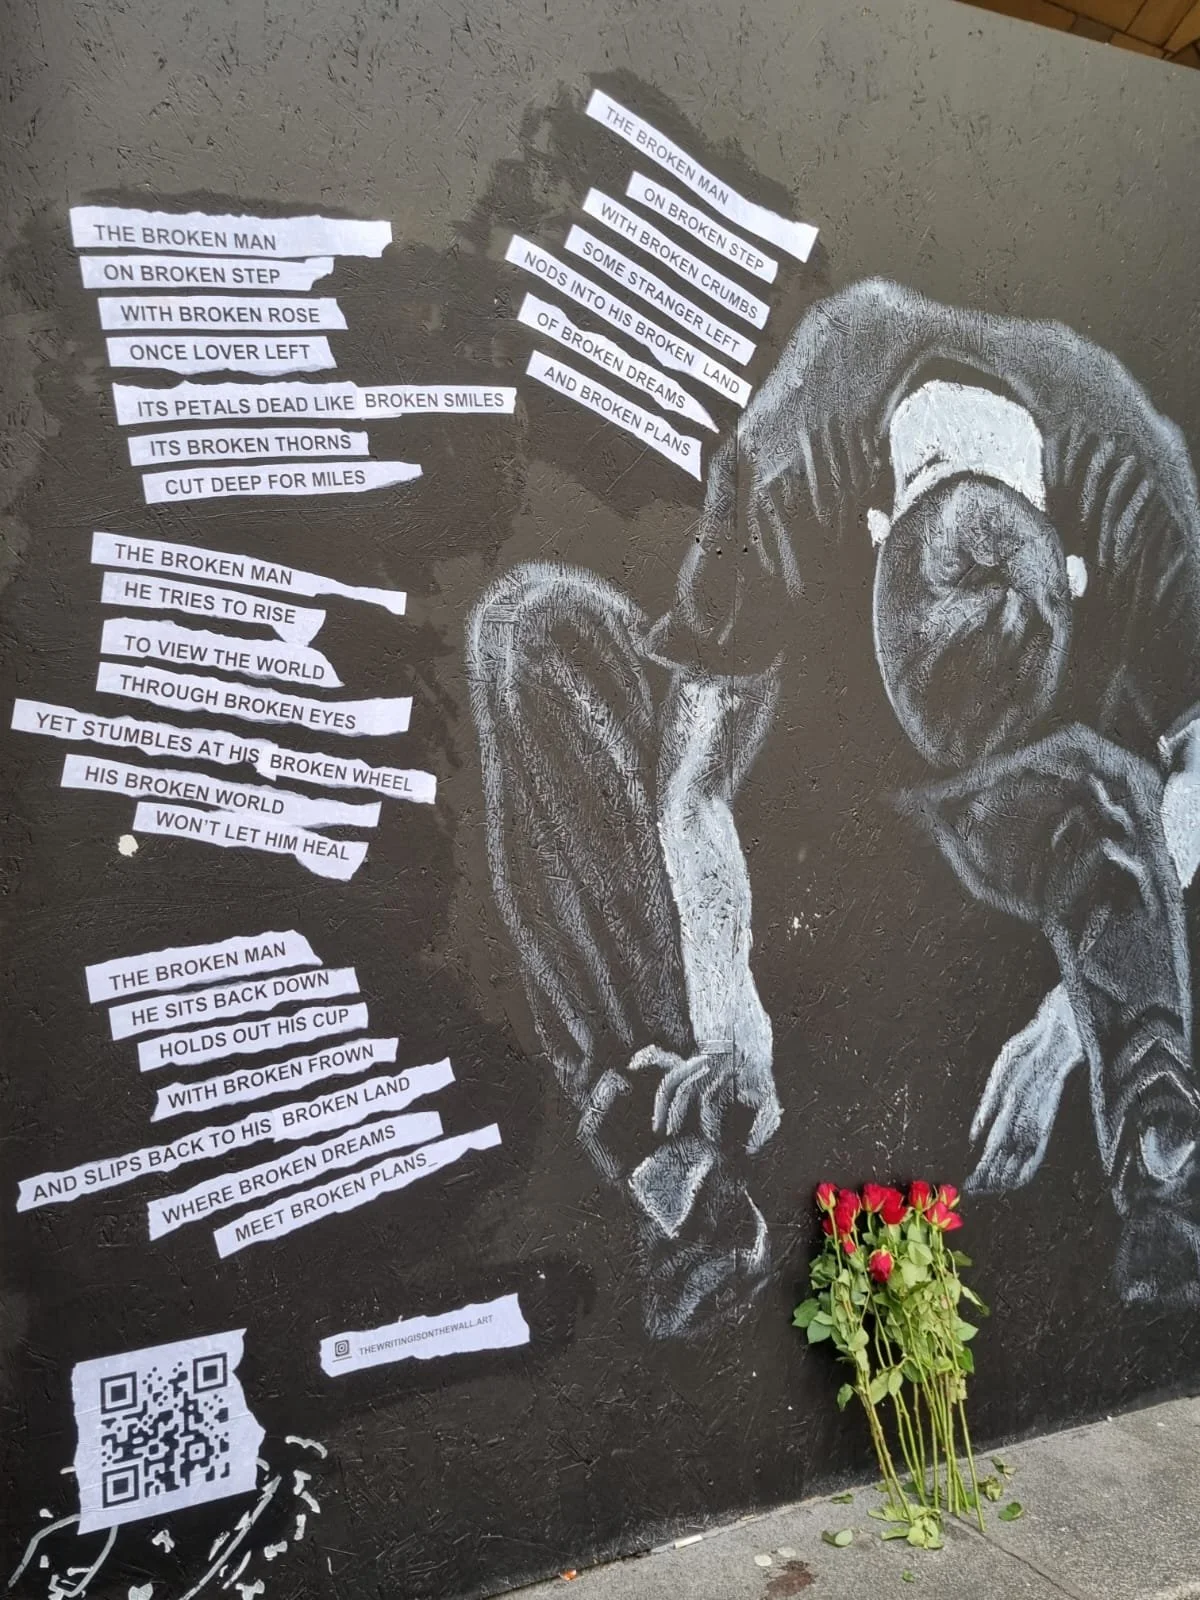 THE BROKEN MAN
ON BROKEN STEP
WITH BROKEN ROSE
ONCE LOVER LEFT
ITS PETALS DEAD LIKE BROKEN SMILES
ITS BROKEN THORNS
CUT DEEP FOR MILES
THE BROKEN MAN
HE TRIES TO RISE
TO VIEW THE WORLD
THROUGH BROKEN EYES
YET STUMBLES AT HIS BROKEN WHEEL
HIS BROKEN WORLD
WON'T LET HIM HEAL
THE BROKEN MAN
HE SITS BACK DOWN
HOLDS OUT HIS CUP
WITH BROKEN FROWN
AND SLIPS BACK TO HIS BROKEN LAND
WHERE BROKEN DREAMS
MEET BROKEN PLANS_
THE BROKEN MAN
ON BROKEN STEP
WITH BROKEN CRUMBS
SOME STRANGER LEFT
NODS INTO HIS BROKEN LAND
OF BROKEN DREAMS
AND BROKEN PLANS
THEWRITINGISONTHEWALL.ART